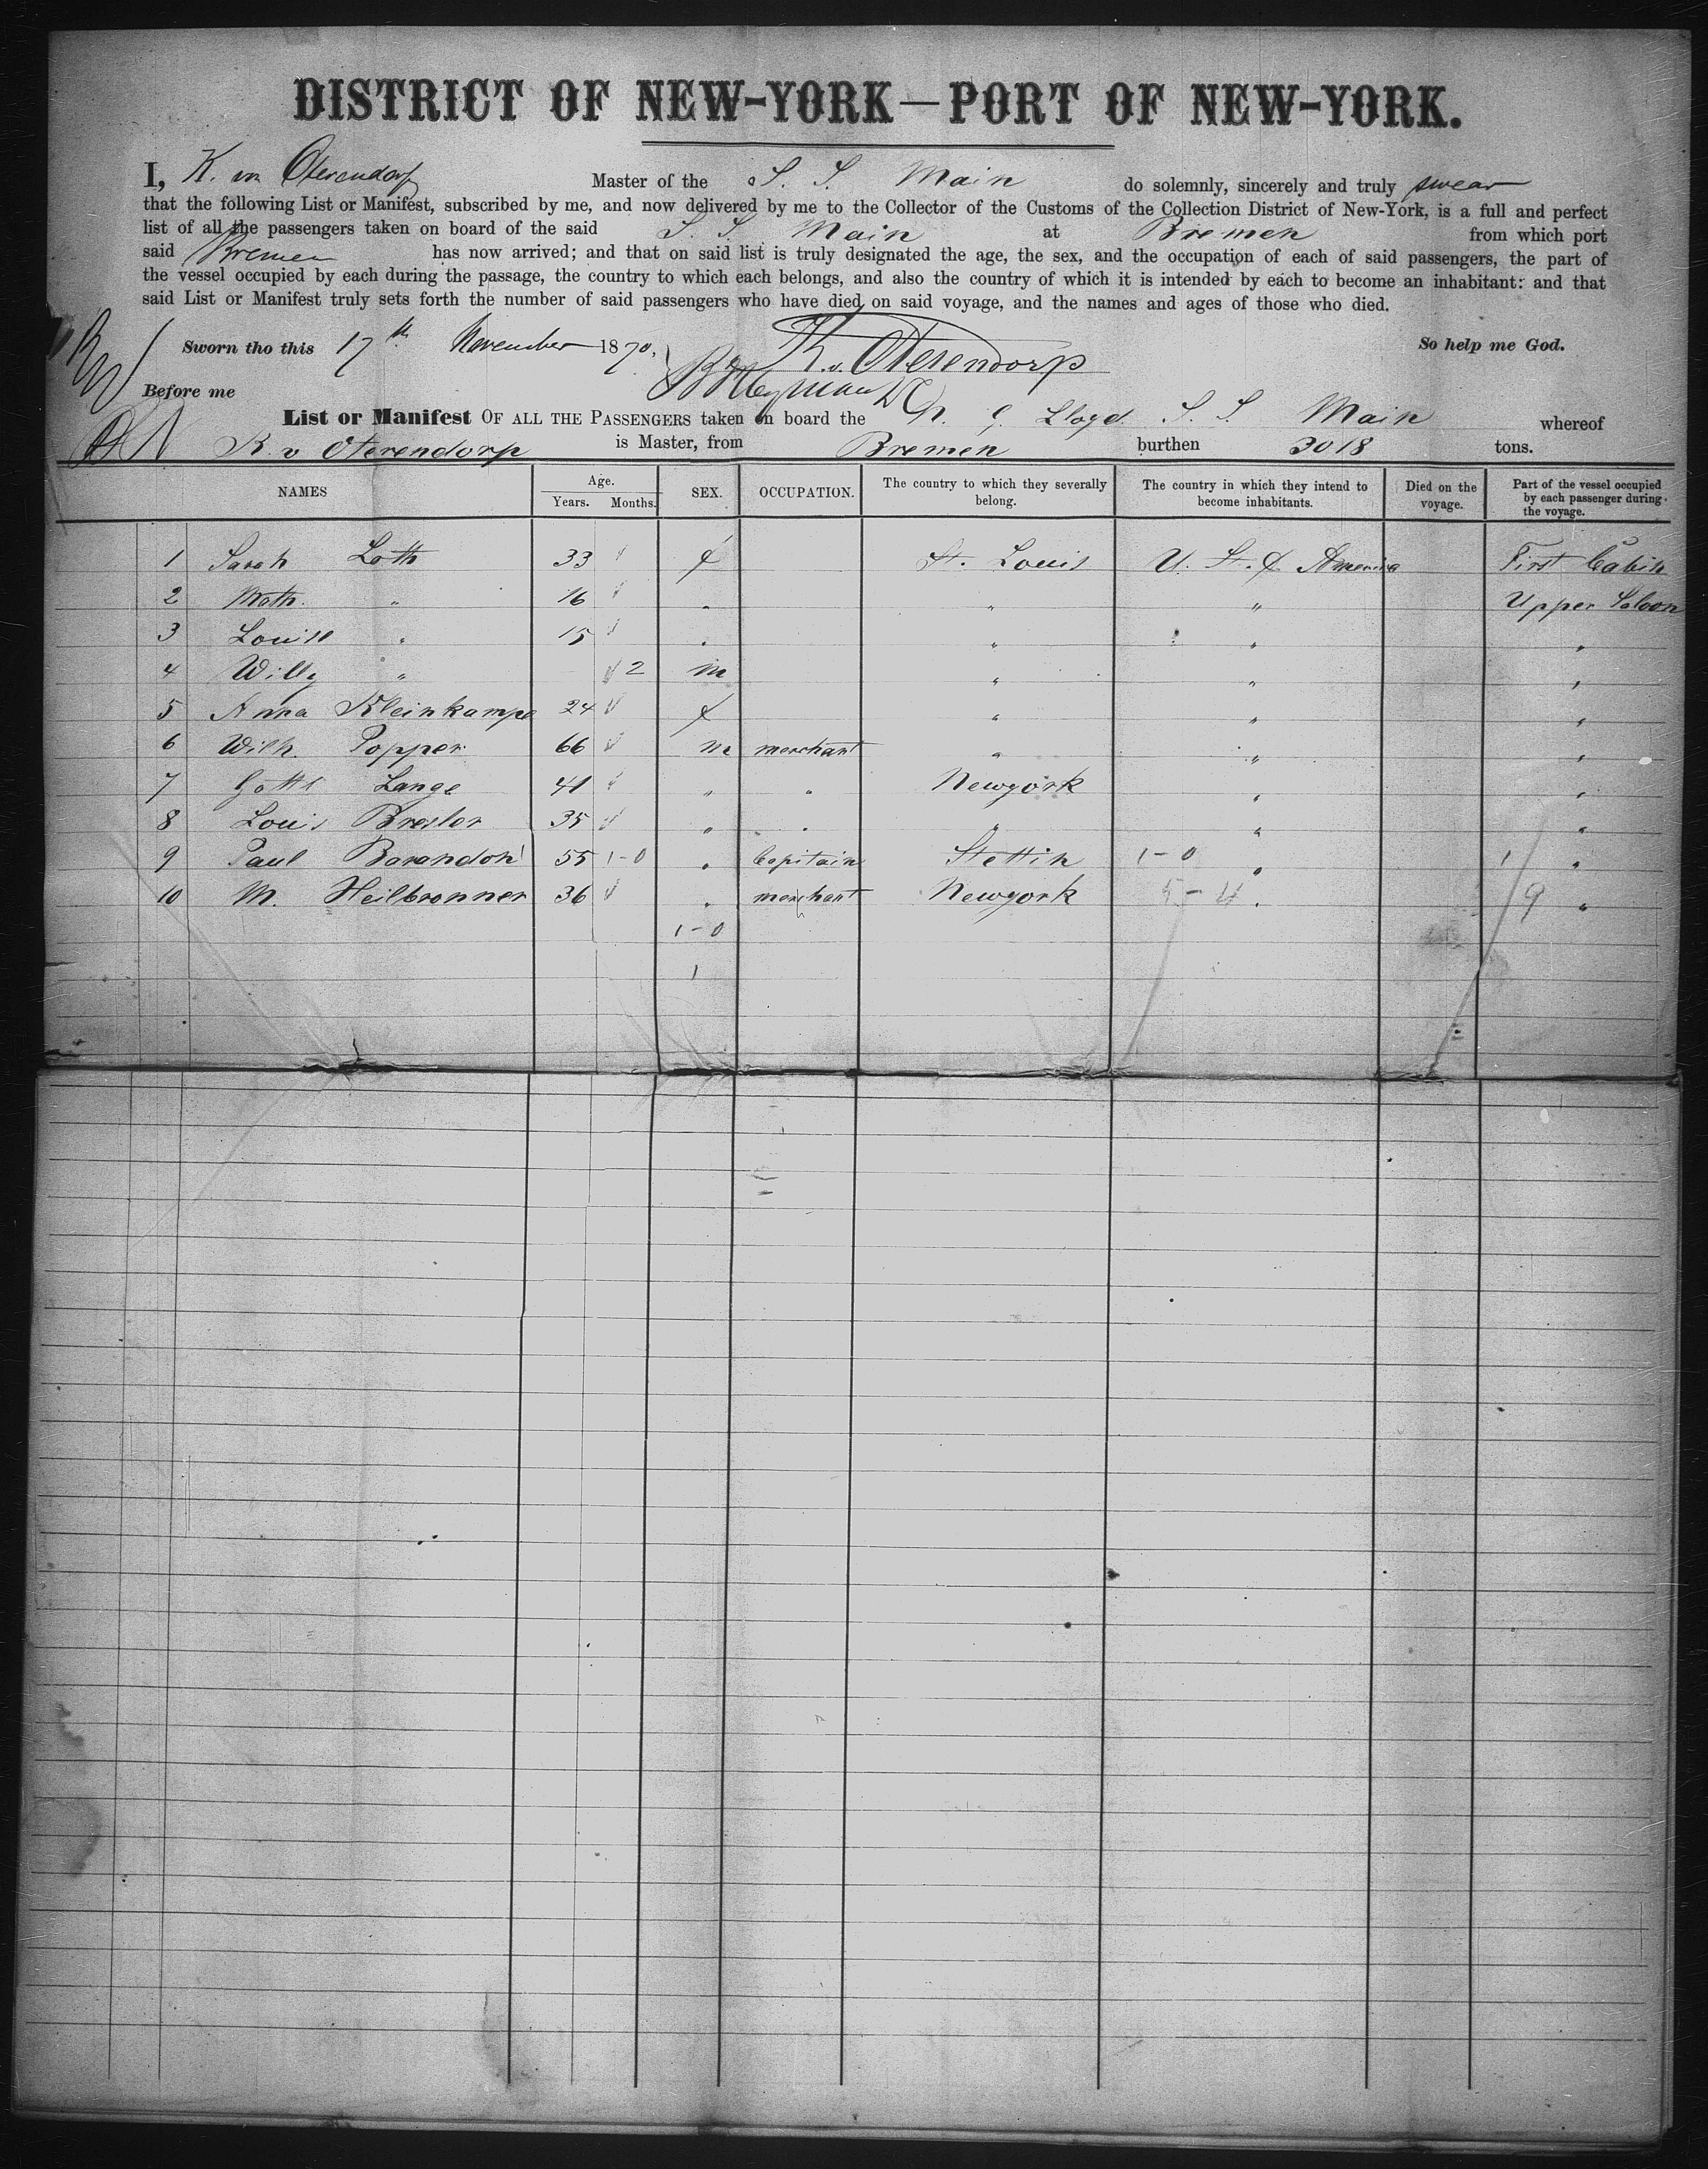 DISTRICT OF NEW-YORK—PORT OF NEW-YORK.
I, K. von Oterendorp Master of the S. S. Main do solemnly, sincerely and truly swear
that the following List or Manifest, subscribed by me, and now delivered by me to the Collector of the Customs of the Collection District of New-York, is a full and perfect
list of all the passengers taken on board of the said S. S. Main at Bremen from which port
said Bremen has now arrived; and that on said list is truly designated the age, the sex, and the occupation of each of said passengers, the part of
the vessel occupied by each during the passage, the country to which each belongs, and also the country of which it is intended by each to become an inhabitant: and that
said List or Manifest truly sets forth the number of said passengers who have died on said voyage, and the names and ages of those who died.
Sworn tho this 17th November 1870, K. v. Oterendorp So help me God.
Before me
List or Manifest OF ALL THE PASSENGERS taken on board the N. G. Lloyd S. S. Main whereof
K. v Oterendorp is Master, from Bremen burthen 3018 tons.
NAMES Age. Years. Months. SEX. OCCUPATION. The country to which they severally belong. The country in which they intend to become inhabitants. Died on the voyage. Part of the vessel occupied by each passenger during the voyage.
1 Sarah Loth 33 f St. Louis U. St. of America First Cabin
2 Math. " 16 " " " Upper Saloon
3 Louise " 15 " " " "
4 Willy " 2 m " " "
5 Anna Kleinkampe 24 f " " "
6 Wilh. Popper 66 m merchant " " "
7 Gottl Lange 41 " " Newyork " "
8 Louis Bresler 35 " " " " "
9 Paul Barandon 55 1-0 " Capitain Stettin 1-0 " 1 "
10 M. Heilbronner 36 " merchant Newyork 5-4 " 9 "
1-0
1